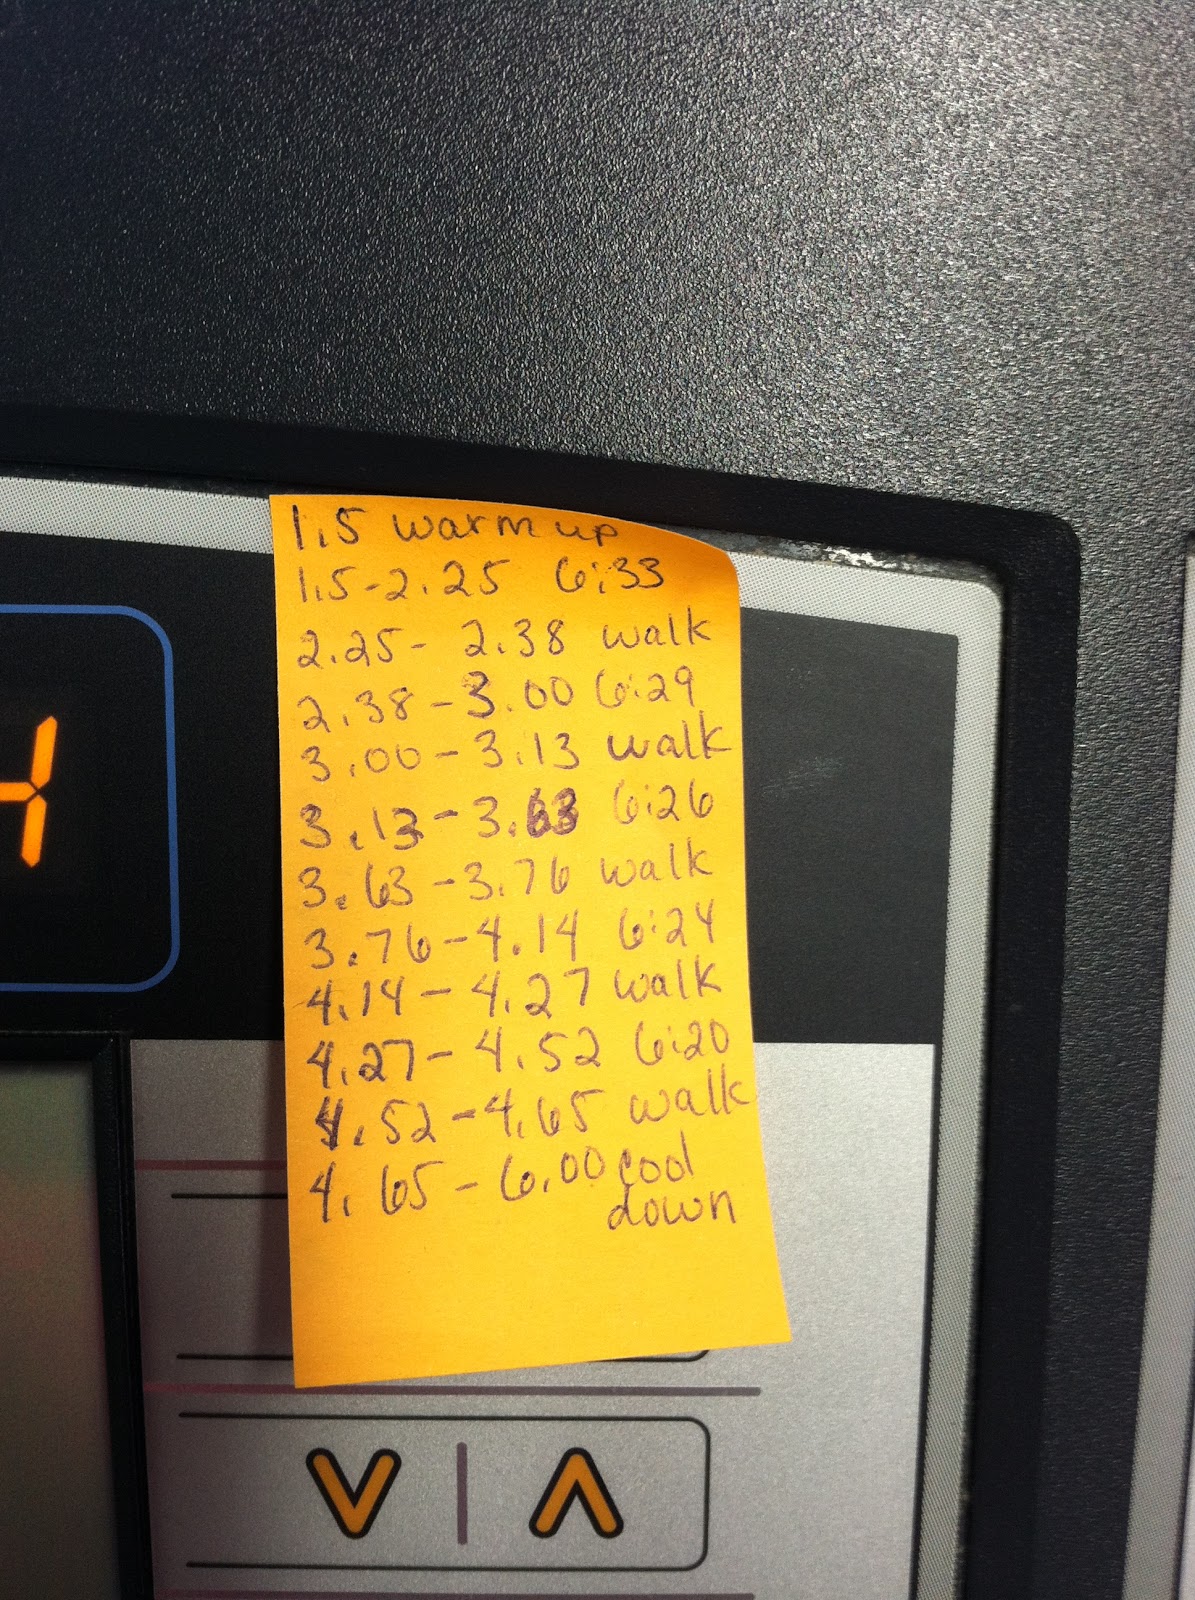 1.5 warm up
1.5-2.25 6:33
2.25- 2.38 walk
2.38-3.00 6:29
3.00-3.13 walk
3.13-3.63 6:26
3.63-3.76 walk
3.76-4.14 6:24
4.14-4.27 walk
4.27-4.52 6:20
4.52-4.65 walk
4.65-6.00 cool
down